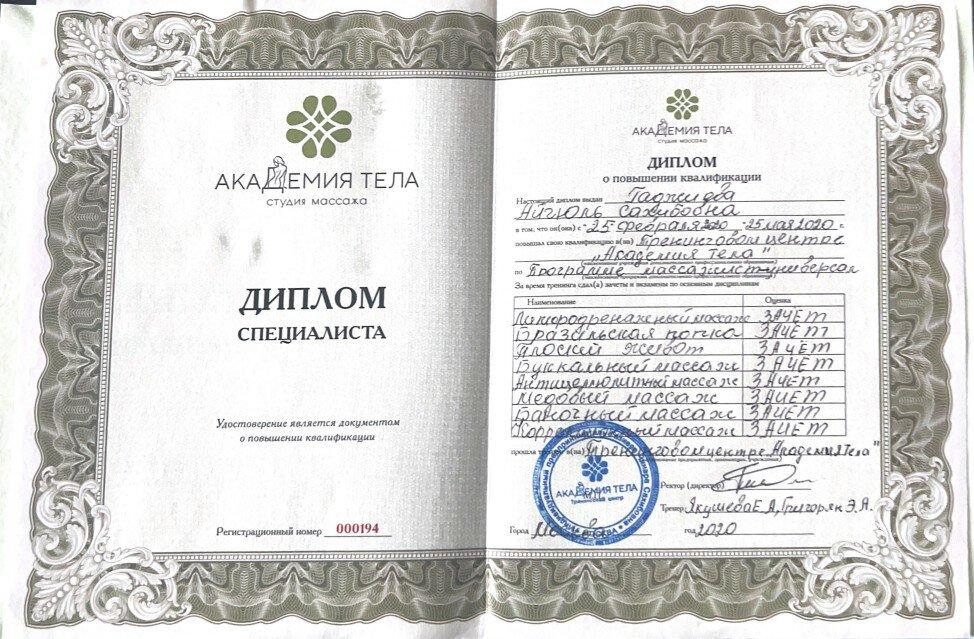 АКАДЕМИЯ ТЕЛА
студия массажа
ДИПЛОМ
СПЕЦИАЛИСТА
Удостоверение является документом
о повышении квалификации
Регистрационный номер 000194
АКАДЕМИЯ ТЕЛА
студия массажа
ДИПЛОМ
о повышении квалификации
Настоящий диплом выдан
Айгюль Сахибовна
в том, что он(она) с "25 февраля 2020 - 25 мая 2020 г.
повышал свою квалификацию в(на) Тренинговом центре
„Академия тела"
по Программе массажист универсал
За время тренинга сдал(а) зачеты и экзамены по основным дисциплинам
Наименование Оценка
Лимфодренажный массаж ЗАЧЕТ
Бразильская попка ЗАЧЕТ
Плоский живот ЗАЧЁТ
Буккальный массаж ЗАЧЕТ
Антицеллюлитный массаж ЗАЧЕТ
Медовый массаж ЗАЧЕТ
Баночный массаж ЗАЧЕТ
массаж ЗАЧЕТ
прошла в(на) Тренинговом центре „Академия Тела"
АКАДЕМИЯ ТЕЛА
Тренинговый центр
Ректор (директор)
Тренер Якушева Е.А, Григорян Э.А.
Город год 2020